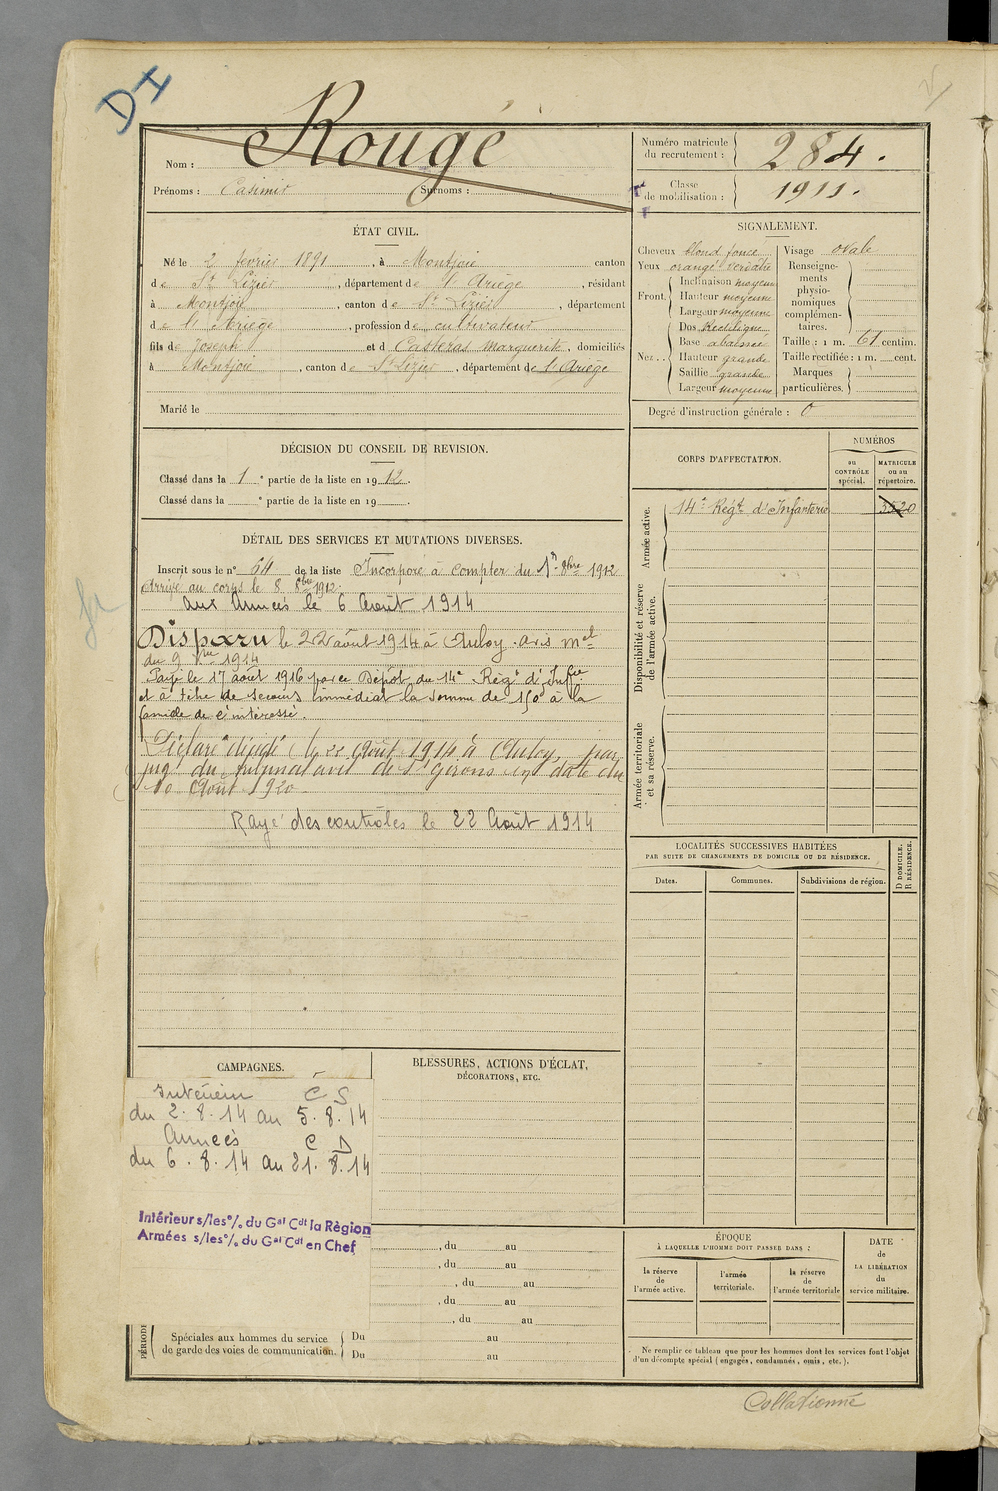 DI
Nom : Rougé
Prénoms : Casimir Surnoms :
Numéro matricule du recrutement : 284.
Classe de mobilisation : 1911.
ÉTAT CIVIL.
Né le 2 février 1891, à Montjoie canton
de St Lizier, département de l'Ariège, résidant
à Montjoie, canton de St Lizier, département
de l'Ariège, profession de cultivateur
fils de Joseph et de Casteras Marguerite, domiciliés
à Montjoie, canton de St Lizier, département de l'Ariège
Marié le
SIGNALEMENT.
Cheveux blond foncé
Yeux orangé verdâtre
Front. Inclinaison moyenne
Hauteur moyenne
Largeur moyenne
Nez.. Dos Rectiligne
Base abaissée
Hauteur grande
Saillie grande
Largeur moyenne
Visage ovale
Renseigne-
ments
physio-
nomiques
complémen-
taires.
Taille : 1 m. 61 centim.
Taille rectifiée : 1 m. cent.
Marques
particulières.
Degré d'instruction générale : 0
DÉCISION DU CONSEIL DE REVISION.
Classé dans la 1e partie de la liste en 1912.
Classé dans la e partie de la liste en 19 .
DÉTAIL DES SERVICES ET MUTATIONS DIVERSES.
Inscrit sous le n° 64 de la liste Incorporé à compter du 1er 8bre 1912
Arrivé au corps le 8 8bre 1912.
Aux Armées le 6 Août 1914
Disparu le 22 août 1914 à Anloy. Avis mel
du 9 1914
Payé le 17 août 1916 par ce Dépôt du 14e Régt d'Infie
et à titre de secours immédiat la somme de 150 à la
famille de l'intéressé.
Déclaré décédé le 22 Août 1914 à Anloy, par
jug du tribunal civil de St Girons en date du
10 Août 1920
Rayé des contrôles le 22 Août 1914
CORPS D'AFFECTATION.
NUMÉROS
au CONTRÔLE spécial.
MATRICULE ou au répertoire.
Armée active.
14e Régt d'Infanterie 3520
Disponibilité et réserve de l'armée active.
Armée territoriale et sa réserve.
LOCALITÉS SUCCESSIVES HABITÉES
PAR SUITE DE CHANGEMENTS DE DOMICILE OU DE RÉSIDENCE.
Dates. Communes. Subdivisions de région.
D DOMICILE.
R RÉSIDENCE.
CAMPAGNES.
Intérieur C S
du 2.8.14 au 5.8.14
Armées C D
du 6.8.14 au 21.8.14
Intérieur s/les°/. du Gal Cdt la Région
Armées s/les°/. du Gal Cdt en Chef
BLESSURES, ACTIONS D'ÉCLAT,
DÉCORATIONS, ETC.
, du au
, du au
, du au
, du au
, du au
PÉRIODE
Spéciales aux hommes du service
de garde des voies de communication.
Du au
Du au
ÉPOQUE
À LAQUELLE L'HOMME DOIT PASSER DANS :
la réserve de l'armée active.
l'armée territoriale.
la réserve de l'armée territoriale
DATE de LA LIBÉRATION du service militaire.
Ne remplir ce tableau que pour les hommes dont les services font l'objet
d'un décompte spécial (engagés, condamnés, omis, etc.).
Collationné